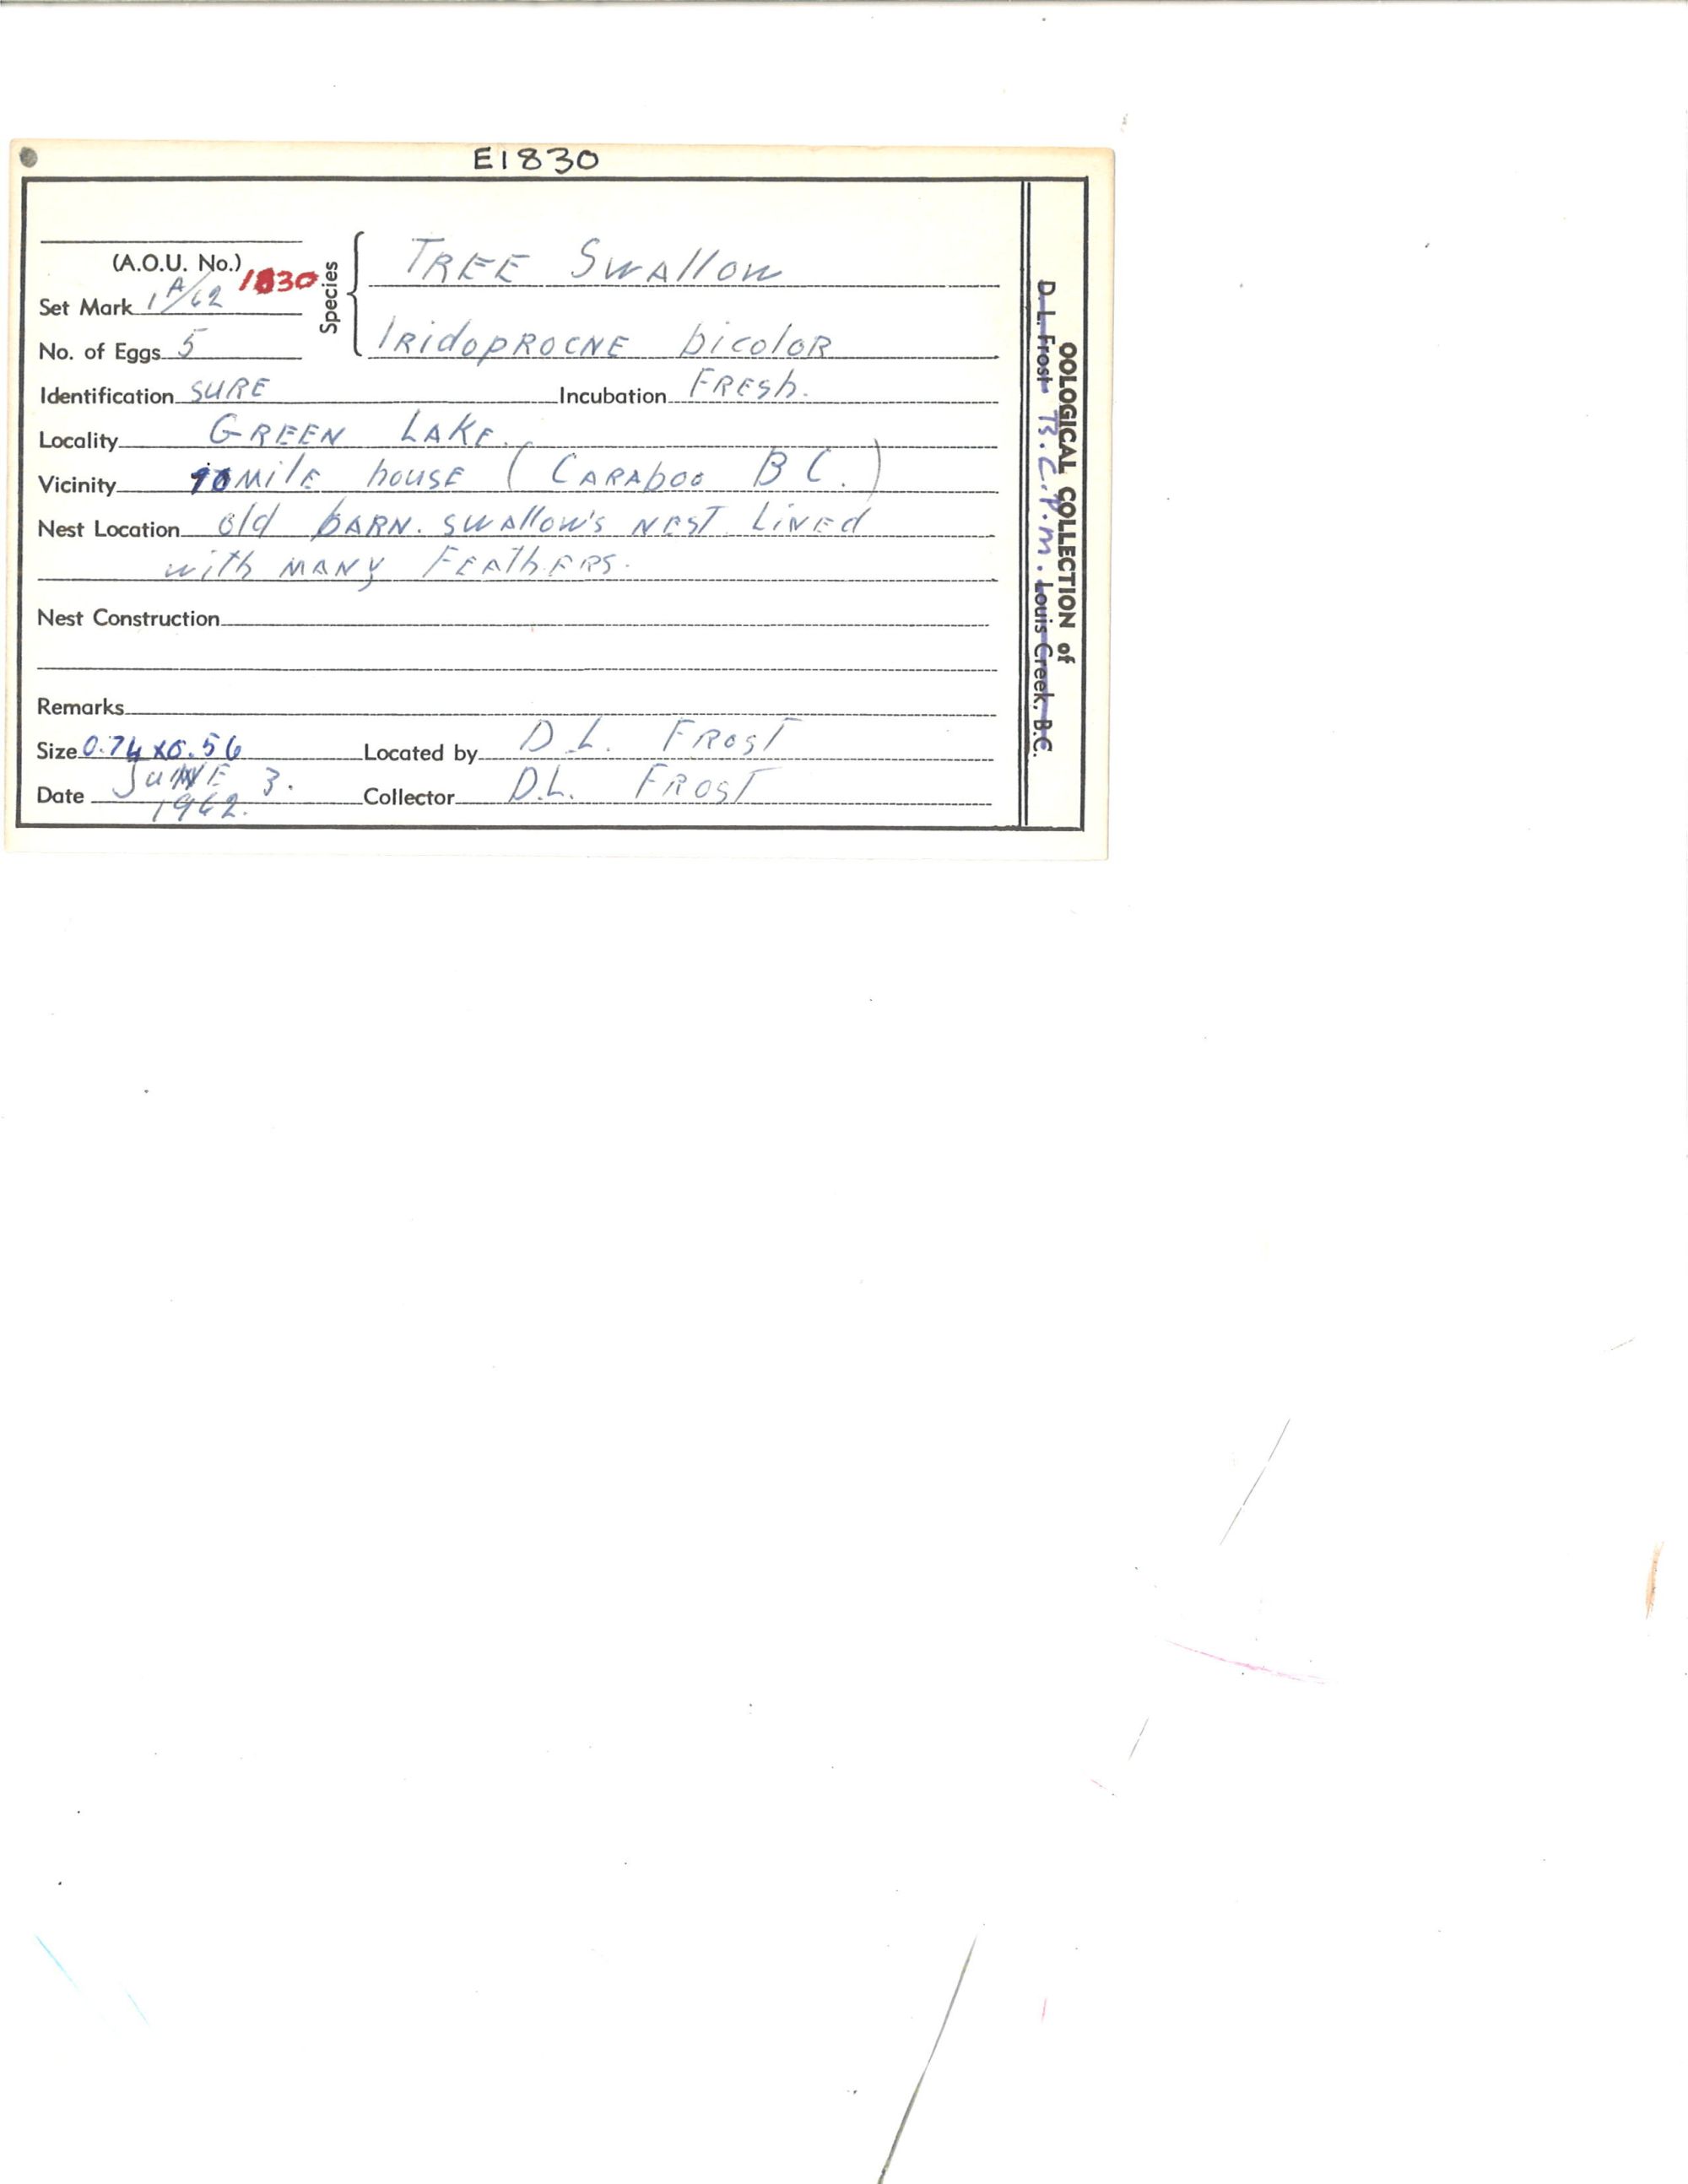 E1830
(A.O.U. No.) 1830
Set Mark 1 A/62
No. of Eggs 5
Species
TREE Swallow
IRidopROCNE bicoloR
Identification SURE Incubation FRESh.
Locality GREEN LAKE.
Vicinity 70 MilE housE (CARAboo B C.)
Nest Location old bARN. swAllow's NEST LiNEd
with MANy FEAThERS.
Nest Construction
Remarks
Size 0.74 x0.56 Located by D.L. FROST
Date JUNE 3. 1962. Collector D.L. FROST
OOLOGICAL COLLECTION of
D. L. Frost B.C.P.M. Louis Creek, B.C.